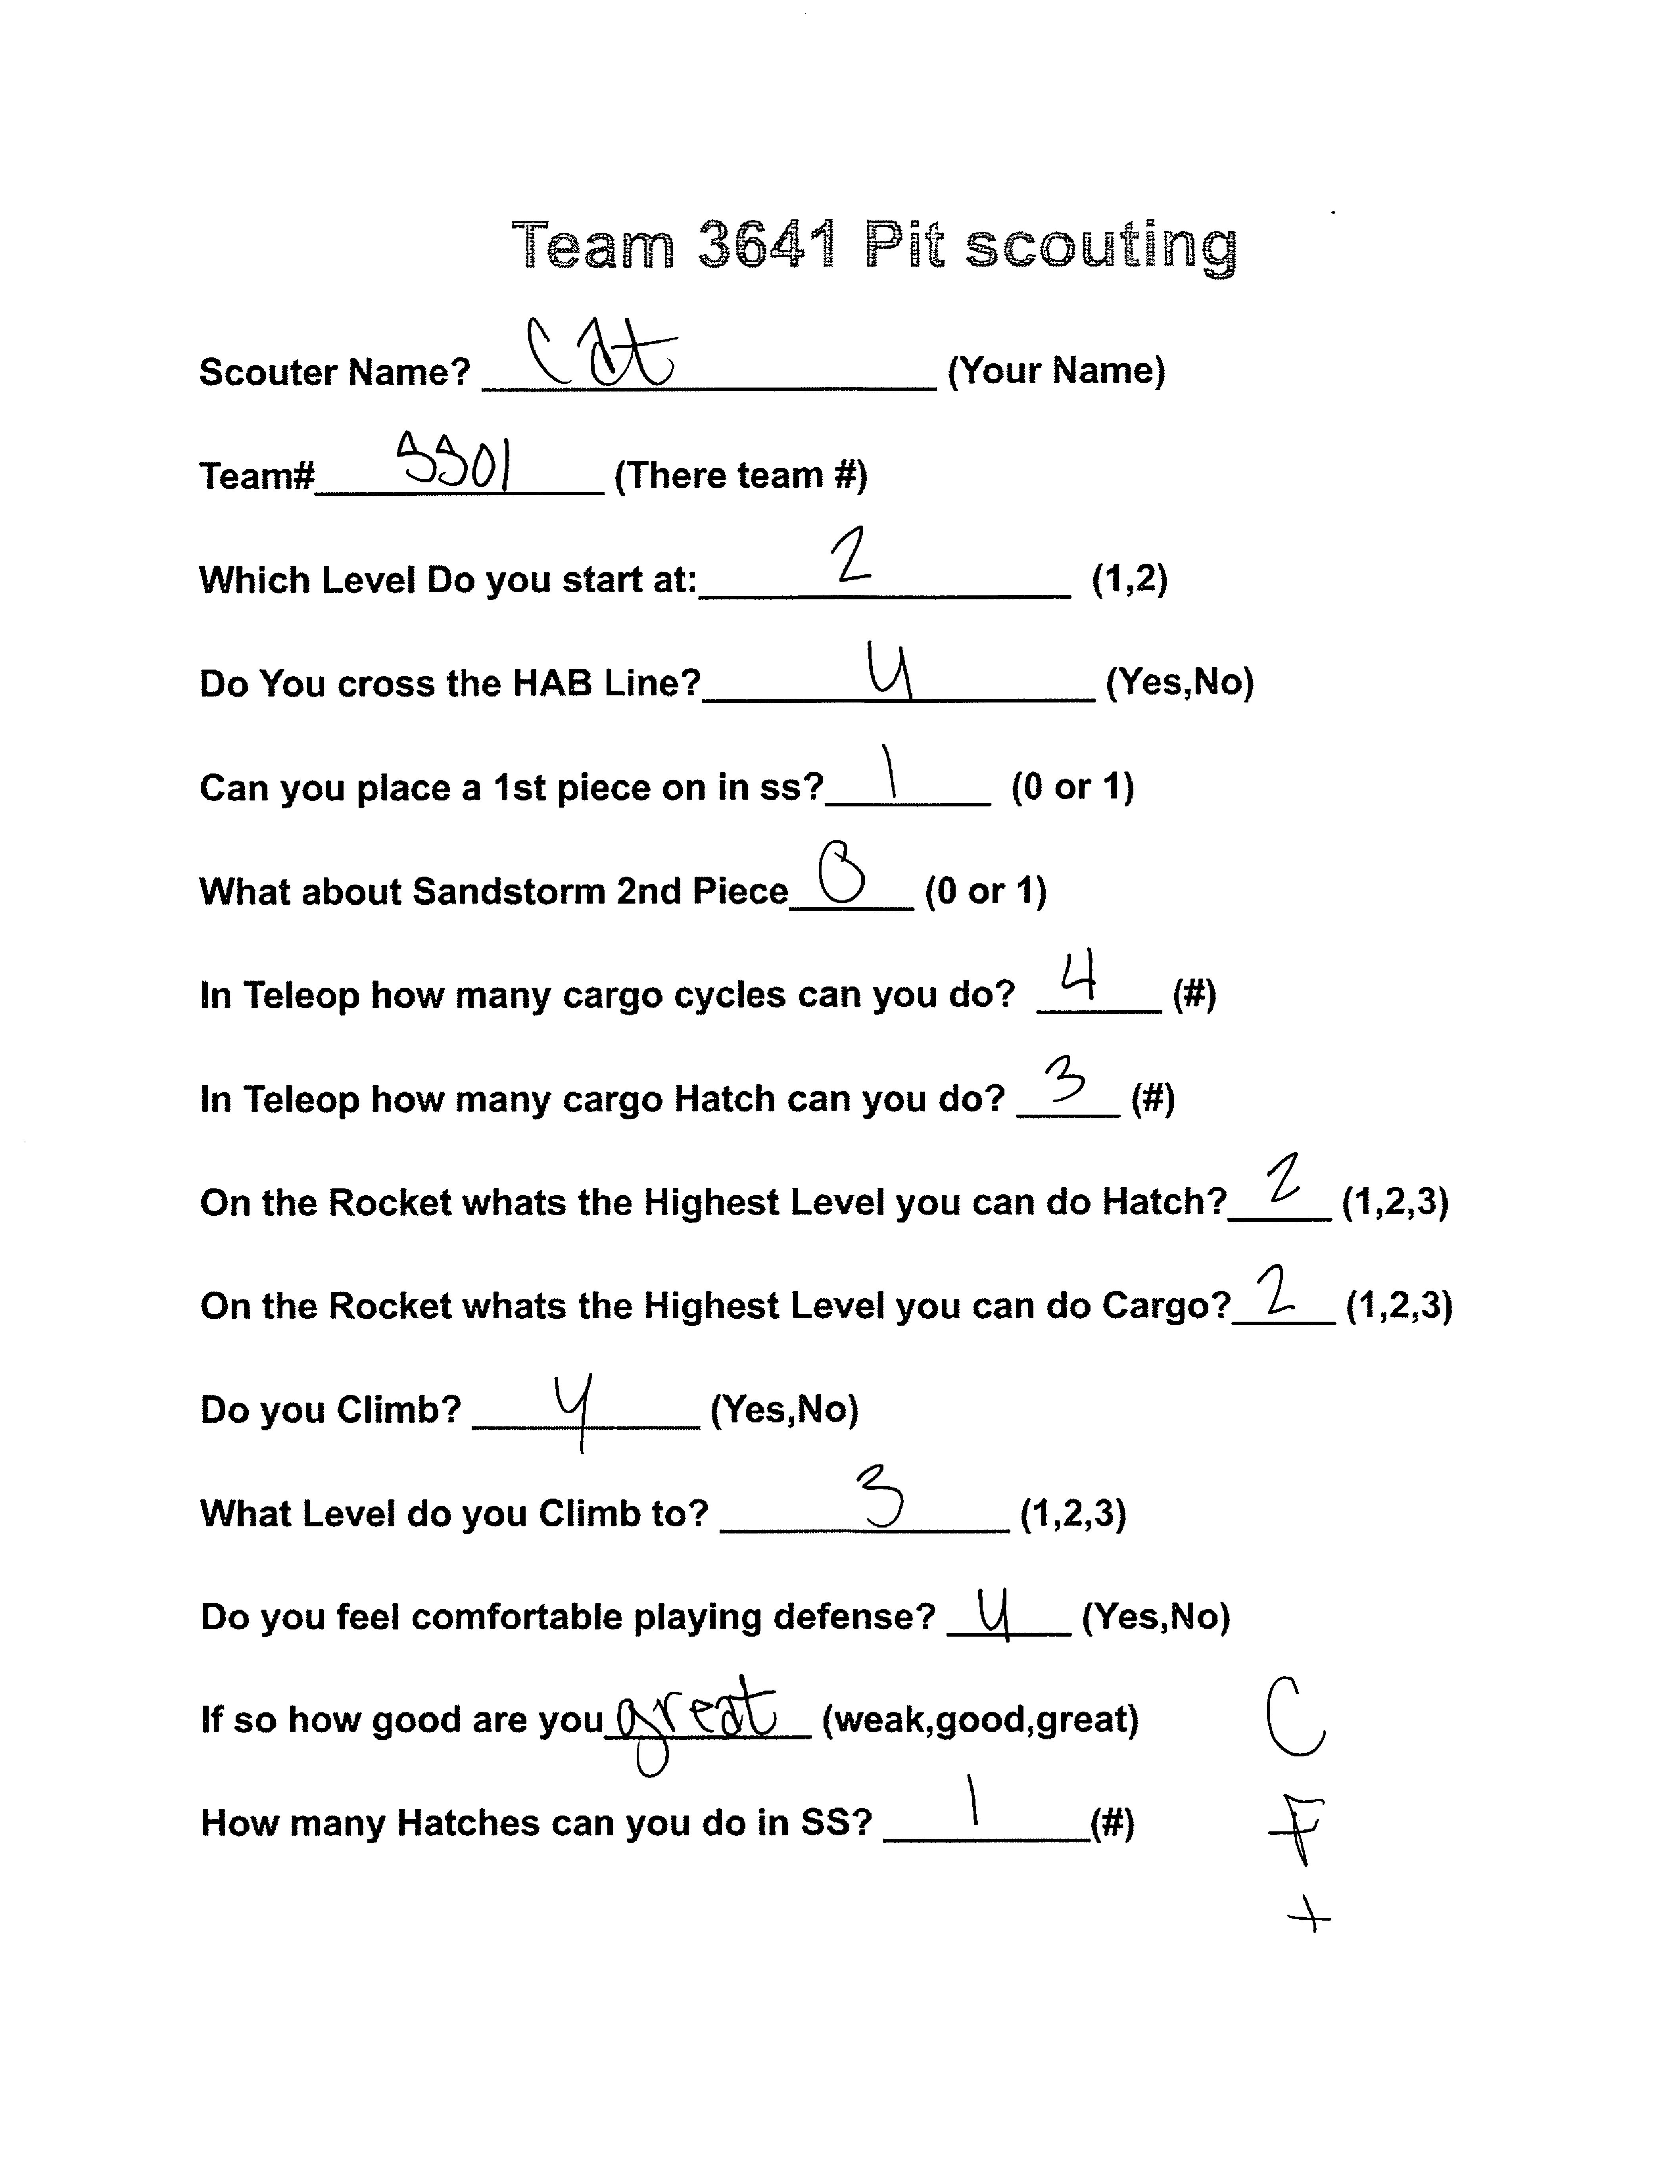 Team 3641 Pit scouting
Scouter Name? Cat (Your Name)
Team# 5501 (There team #)
Which Level Do you start at: 2 (1,2)
Do You cross the HAB Line? y (Yes,No)
Can you place a 1st piece on in ss? 1 (0 or 1)
What about Sandstorm 2nd Piece 0 (0 or 1)
In Teleop how many cargo cycles can you do? 4 (#)
In Teleop how many cargo Hatch can you do? 3 (#)
On the Rocket whats the Highest Level you can do Hatch? 2 (1,2,3)
On the Rocket whats the Highest Level you can do Cargo? 2 (1,2,3)
Do you Climb? y (Yes,No)
What Level do you Climb to? 3 (1,2,3)
Do you feel comfortable playing defense? y (Yes,No)
If so how good are you great (weak,good,great)
C
How many Hatches can you do in SS? 1 (#)
F
+